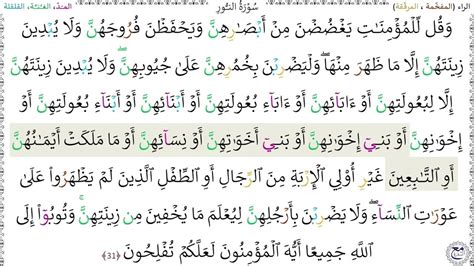 الراء (المفخّمة ، المرقّقة) سُورَةُ النُّورِ المدّ، الغنّة، القلقلة
وَقُل لِّلْمُؤْمِنَٰتِ يَغْضُضْنَ مِنْ أَبْصَٰرِهِنَّ وَيَحْفَظْنَ فُرُوجَهُنَّ وَلَا يُبْدِينَ
زِينَتَهُنَّ إِلَّا مَا ظَهَرَ مِنْهَا ۖ وَلْيَضْرِبْنَ بِخُمُرِهِنَّ عَلَىٰ جُيُوبِهِنَّ ۖ وَلَا يُبْدِينَ زِينَتَهُنَّ
إِلَّا لِبُعُولَتِهِنَّ أَوْ ءَابَآئِهِنَّ أَوْ ءَابَآءِ بُعُولَتِهِنَّ أَوْ أَبْنَآئِهِنَّ أَوْ أَبْنَآءِ بُعُولَتِهِنَّ أَوْ
إِخْوَٰنِهِنَّ أَوْ بَنِىٓ إِخْوَٰنِهِنَّ أَوْ بَنِىٓ أَخَوَٰتِهِنَّ أَوْ نِسَآئِهِنَّ أَوْ مَا مَلَكَتْ أَيْمَٰنُهُنَّ
أَوِ ٱلتَّٰبِعِينَ غَيْرِ أُو۟لِى ٱلْإِرْبَةِ مِنَ ٱلرِّجَالِ أَوِ ٱلطِّفْلِ ٱلَّذِينَ لَمْ يَظْهَرُوا۟ عَلَىٰ
عَوْرَٰتِ ٱلنِّسَآءِ ۖ وَلَا يَضْرِبْنَ بِأَرْجُلِهِنَّ لِيُعْلَمَ مَا يُخْفِينَ مِن زِينَتِهِنَّ ۚ وَتُوبُوٓا۟ إِلَى
ٱللَّهِ جَمِيعًا أَيُّهَ ٱلْمُؤْمِنُونَ لَعَلَّكُمْ تُفْلِحُونَ ﴿31﴾